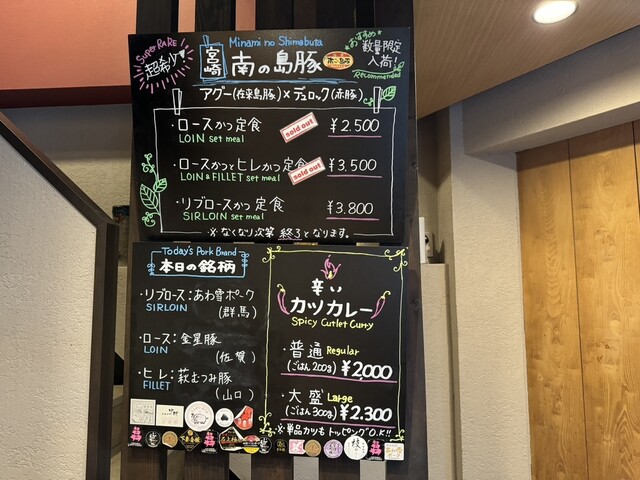 SUPER RARE
超希少
宮崎
Minami no Shimabuta
南の島豚
おすすめ
数量限定
入荷!
Recommended
アグー(在来島豚)×デュロック(赤豚)
・ロースかつ定食
LOIN set meal
sold out
¥2.500
・ロースかつとヒレかつ定食
LOIN & FILLET set meal
sold out
¥3.500
・リブロースかつ定食
SIRLOIN set meal
¥3.800
※なくなり次第 終了となります。
Today's Pork Brand
本日の銘柄
・リブロース:あわ雪ポーク
SIRLOIN
(群馬)
・ロース:金星豚
LOIN
(佐賀)
・ヒレ:萩むつみ豚
FILLET
(山口)
辛い
カツカレー
Spicy Cutlet Curry
・普通 Regular
(ごはん200g) ¥2,000
・大盛 Large
(ごはん300g) ¥2.300
※単品カツもトッピングO.K!!